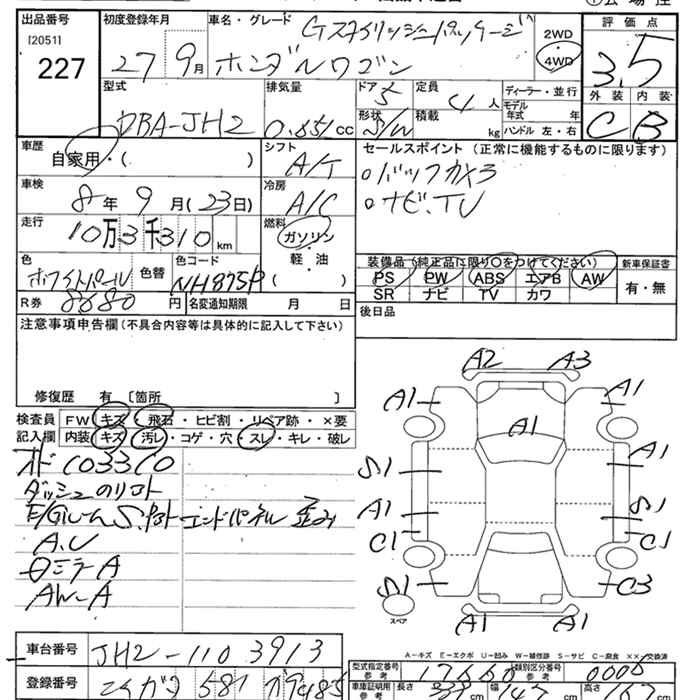 出品番号 初度登録年月 車名・グレード Gスタイリッシュパッケージ 2WD 4WD 評価点
[2051]
227 27年 9月 ホンダ Nワゴン 3.5
型式 排気量 ドア 5 定員 4人 ディーラー・並行 外装 内装
DBA-JH2 0.65Lcc 形状 S/W 積載 kg モデル年式 年 ハンドル 左・右 C B
車歴 自家用・( ) シフト A/T セールスポイント(正常に機能するものに限ります)
車検 8年 9月(23日) 冷房 A/C ○バックカメラ
走行 10万3千310km 燃料 ガソリン・軽・油 ( ) ○ナビ.TV
色 ホワイトパール 色替 色コード NH875P
装備品(純正品に限り○をつけてください) 新車保証書
PS PW ABS エアB AW 有・無
SR ナビ TV カワ
R券 8680円 名変通知期限 月 日 後日品
注意事項申告欄(不具合内容等は具体的に記入して下さい)
修復歴 有 〔箇所 〕
検査員 FW キズ・飛石・ヒビ割・リペア跡・×要
記入欄 内装 キズ・汚レ・コゲ・穴・スレ・キレ・破レ
A2 A3
A1 A1
A1
S1 A1
A1 S1
C1 C1
S1 C3
A1 A1
スペア
A.U
AW-A
A-キズ E-エクボ U-凹み W-補修跡 S-サビ C-腐食 ××-交換済
車台番号 JH2-1103913
登録番号 581
型式指定番号 参考 類別区分番号 参考
車庫証明用 参考 長さ 幅 高さ